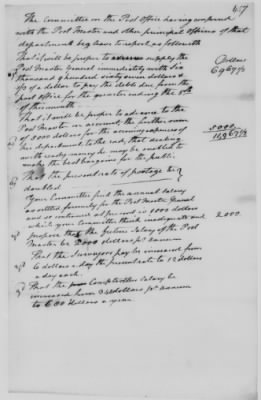 47
The Committee on the Post Office having conferred
with the Post Master and other principal officers of that
department beg leave to report as followeth
That it will be proper to supply the Dollars
Post Master General immediately with Six 6967 1/3
thousand 9 hundred sixty seven dollars &
1/3 of a dollar to pay the debts due from the
post office for the quarter ending the
of this month
That it will be proper to advance to the
Post Master on account, the further sum
of 5000 dollars for the ensuing expences of 5000
his department to the end, that dealing 11,967 1/3
with ready money he may be enabled to
make the best bargains for the public.
That the present rate of postage be
doubled
Your Committee find the annual Salary
as settled formerly for the Post Master General
and so continued at present is 1000 dollars
which your Committee think inadequate and 2000
propose that the future Salary of the Post
Master be 2000 dollars pr annum
That the Surveyors pay be increased from
6 dollars a day the present rate to 12 dollars
a day each.
That the Comptrollers Salary be
increased from dollars pr annum
to dollars a year